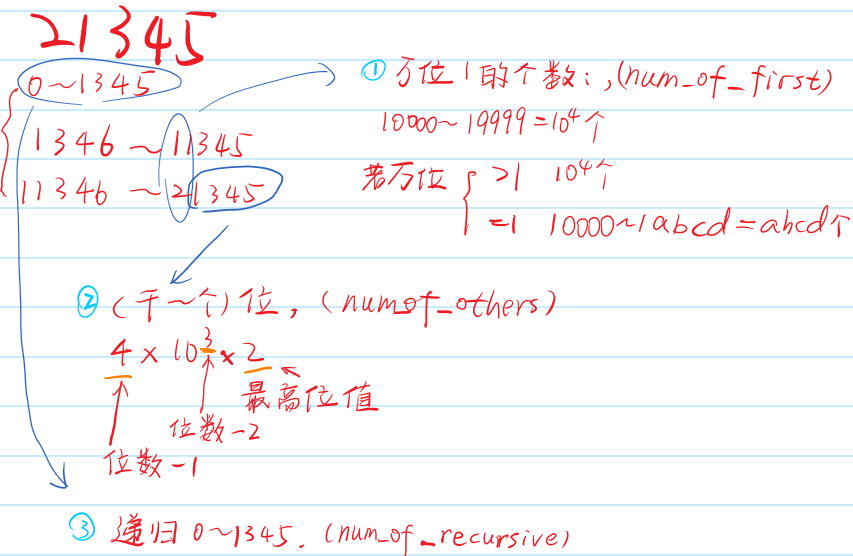 21345
0~1345
1346 ~ 11345
11346 ~ 21345
① 万位1的个数:,(num_of_first)
10000~19999=10⁴个
若万位 { >1 10⁴个
=1 10000~1abcd=abcd个
② (千~个)位,(numof_others)
4 × 10³ × 2
最高位值
位数-2
位数-1
③ 递归 0~1345. (num_of_recursive)